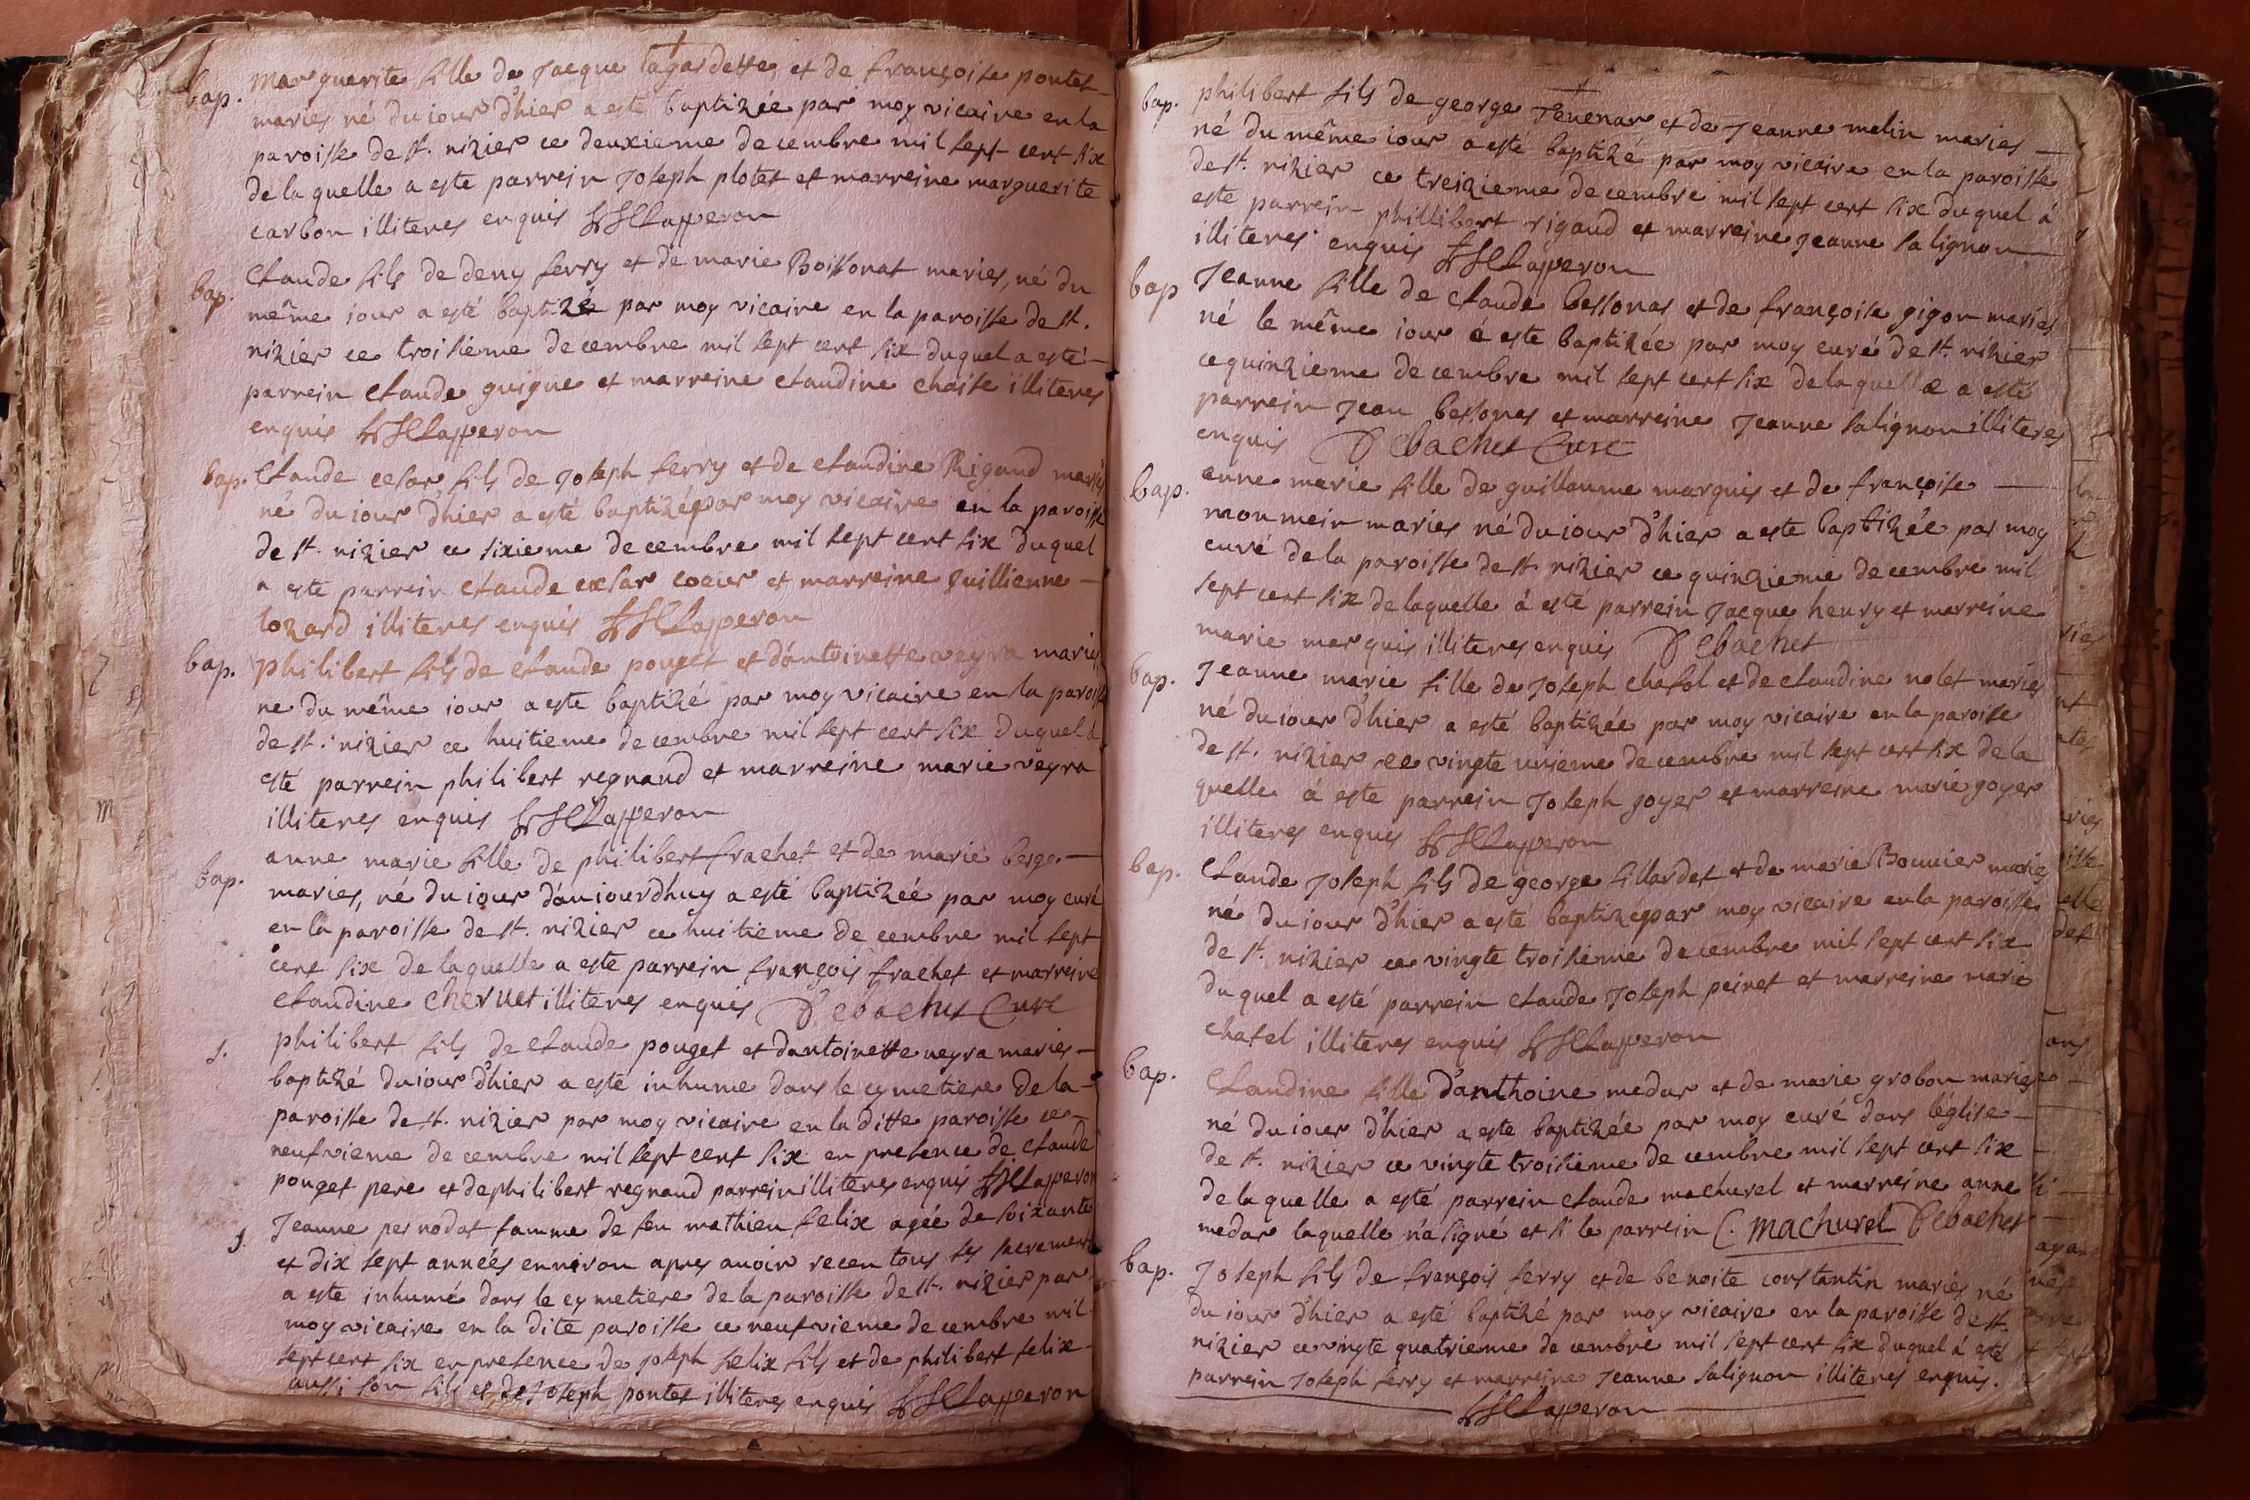 bap. marguerite fille de Jacque lagardette, et de françoise pontet
mariés né du iour d'hier a esté baptizée par moy vicaire en la
paroisse de st. nizier ce deuxieme decembre mil sept cent six
de la quelle a este parrein Joseph plotet et marreine marguerite
carbon illiteres enquis Lapperon
bap. Claude fils de deny ferry et de marie Boissonat maries, né du
même iour a esté baptizé par moy vicaire en la paroisse de st.
nizier ce troisieme decembre mil sept cent six duquel a esté
parrein Claude guigue et marreine claudine chaise illiteres
enquis Lapperon
bap. Claude cesar fils de Joseph ferry et de claudine Rigaud maries
né du iour d'hier a esté baptizé par moy vicaire en la paroisse
de st. nizier ce sixieme decembre mil sept cent six duquel
a este parrein claude cæsar coeur et marreine guillienne
lozard illiteres enquis Lapperon
bap. philibert fils de claude pouget et d'antoinette veyra maries
ne du même iour a este baptizé par moy vicaire en la paroisse
de st. nizier ce huitieme decembre mil sept cent six duquel á
esté parrein philibert regnaud et marreine marie veyra
illiteres enquis Lapperon
bap. anne marie fille de philibert frachet et de marie berge
maries, né du iour d'aujourdhuy a esté baptizée par moy curé
en la paroisse de st. nizier ce huitieme decembre mil sept
cent six de laquelle a este parrein françois frachet et marreine
claudine cheruet illiteres enquis Debachet Curé
s. philibert fils de claude pouget et dantoinette veyra maries
baptizé du iour d'hier a esté inhume dans le cymetiere de la
paroisse de st. nizier par moy vicaire en la ditte paroisse ce
neufvieme decembre mil sept cent six en presence de claude
pouget pere et de philibert regnaud parrein illiteres enquis Lapperon
s. Jeanne pernodat famme de feu mathieu felix agée de soixante
et dix sept années environ apres avoir receu tous ses sacremens
a este inhumé dans le cymetiere de la paroisse de st. nizier par
moy vicaire en la dite paroisse ce neufvieme decembre mil
sept cent six en presence de joseph felix fils et de philibert felix
aussi son fils et de Joseph pontet illiteres enquis Lapperon
bap. philibert fils de george Tevenar et de Jeanne melin maries
né du même iour a esté baptizé par moy vicaire en la paroisse
de st. nizier ce treizieme decembre mil sept cent six duquel á
este parrein phillibert rigaud et marreine Jeanne salignon
illiteres enquis Lapperon
bap Jeanne fille de claude bessonas et de françoise gigon maries
né le même iour a este baptizée par moy curé de st. nizier
ce quinzieme decembre mil sept cent six de laquelle a esté
parrein Jean bessonas et marreine Jeanne salignon illiteres
enquis Debachet Curé
bap. anne marie fille de guillaume marquis et de françoise
monmein maries né du iour d'hier a este baptizée par moy
curé de la paroisse de st. nizier ce quinzieme decembre mil
sept cent six de laquelle á esté parrein Jacque henry et marreine
marie marquis illiteres enquis Debachet
bap. Jeanne marie fille de Joseph chasol et de claudine nolet maries
né du iour d'hier a esté baptizée par moy vicaire en la paroisse
de st. nizier ce vingte unieme decembre mil sept cent six de la
quelle á este parrein Joseph goyer et marreine marie goyer
illiteres enquis Lapperon
bap. Claude Joseph fils de george fillardet et de marie Bouvier maries
né du iour d'hier a esté baptizé par moy vicaire en la paroisse
de st. nizier ce vingte troisieme decembre mil sept cent six
duquel a esté parrein claude Joseph peinet et marreine marie
chatel illiteres enquis Lapperon
bap. Claudine fille d'anthoine medar et de marie grobon maries
né du iour d'hier a este baptizée par moy curé dans l'église
de st. nizier ce vingte troisieme decembre mil sept cent six
de la quelle a esté parrein claude machurel et marreine anne
medar laquelle n'a signé et si le parrein C. machurel Debachet
bap. Joseph fils de françois ferry et de benoite constantin maries né
du iour d'hier a esté baptizé par moy vicaire en la paroisse de st.
nizier ce vingte quatrieme decembre mil sept cent six duquel á esté
parrein Joseph ferry et marreine Jeanne salignon illiteres enquis.
Lapperon